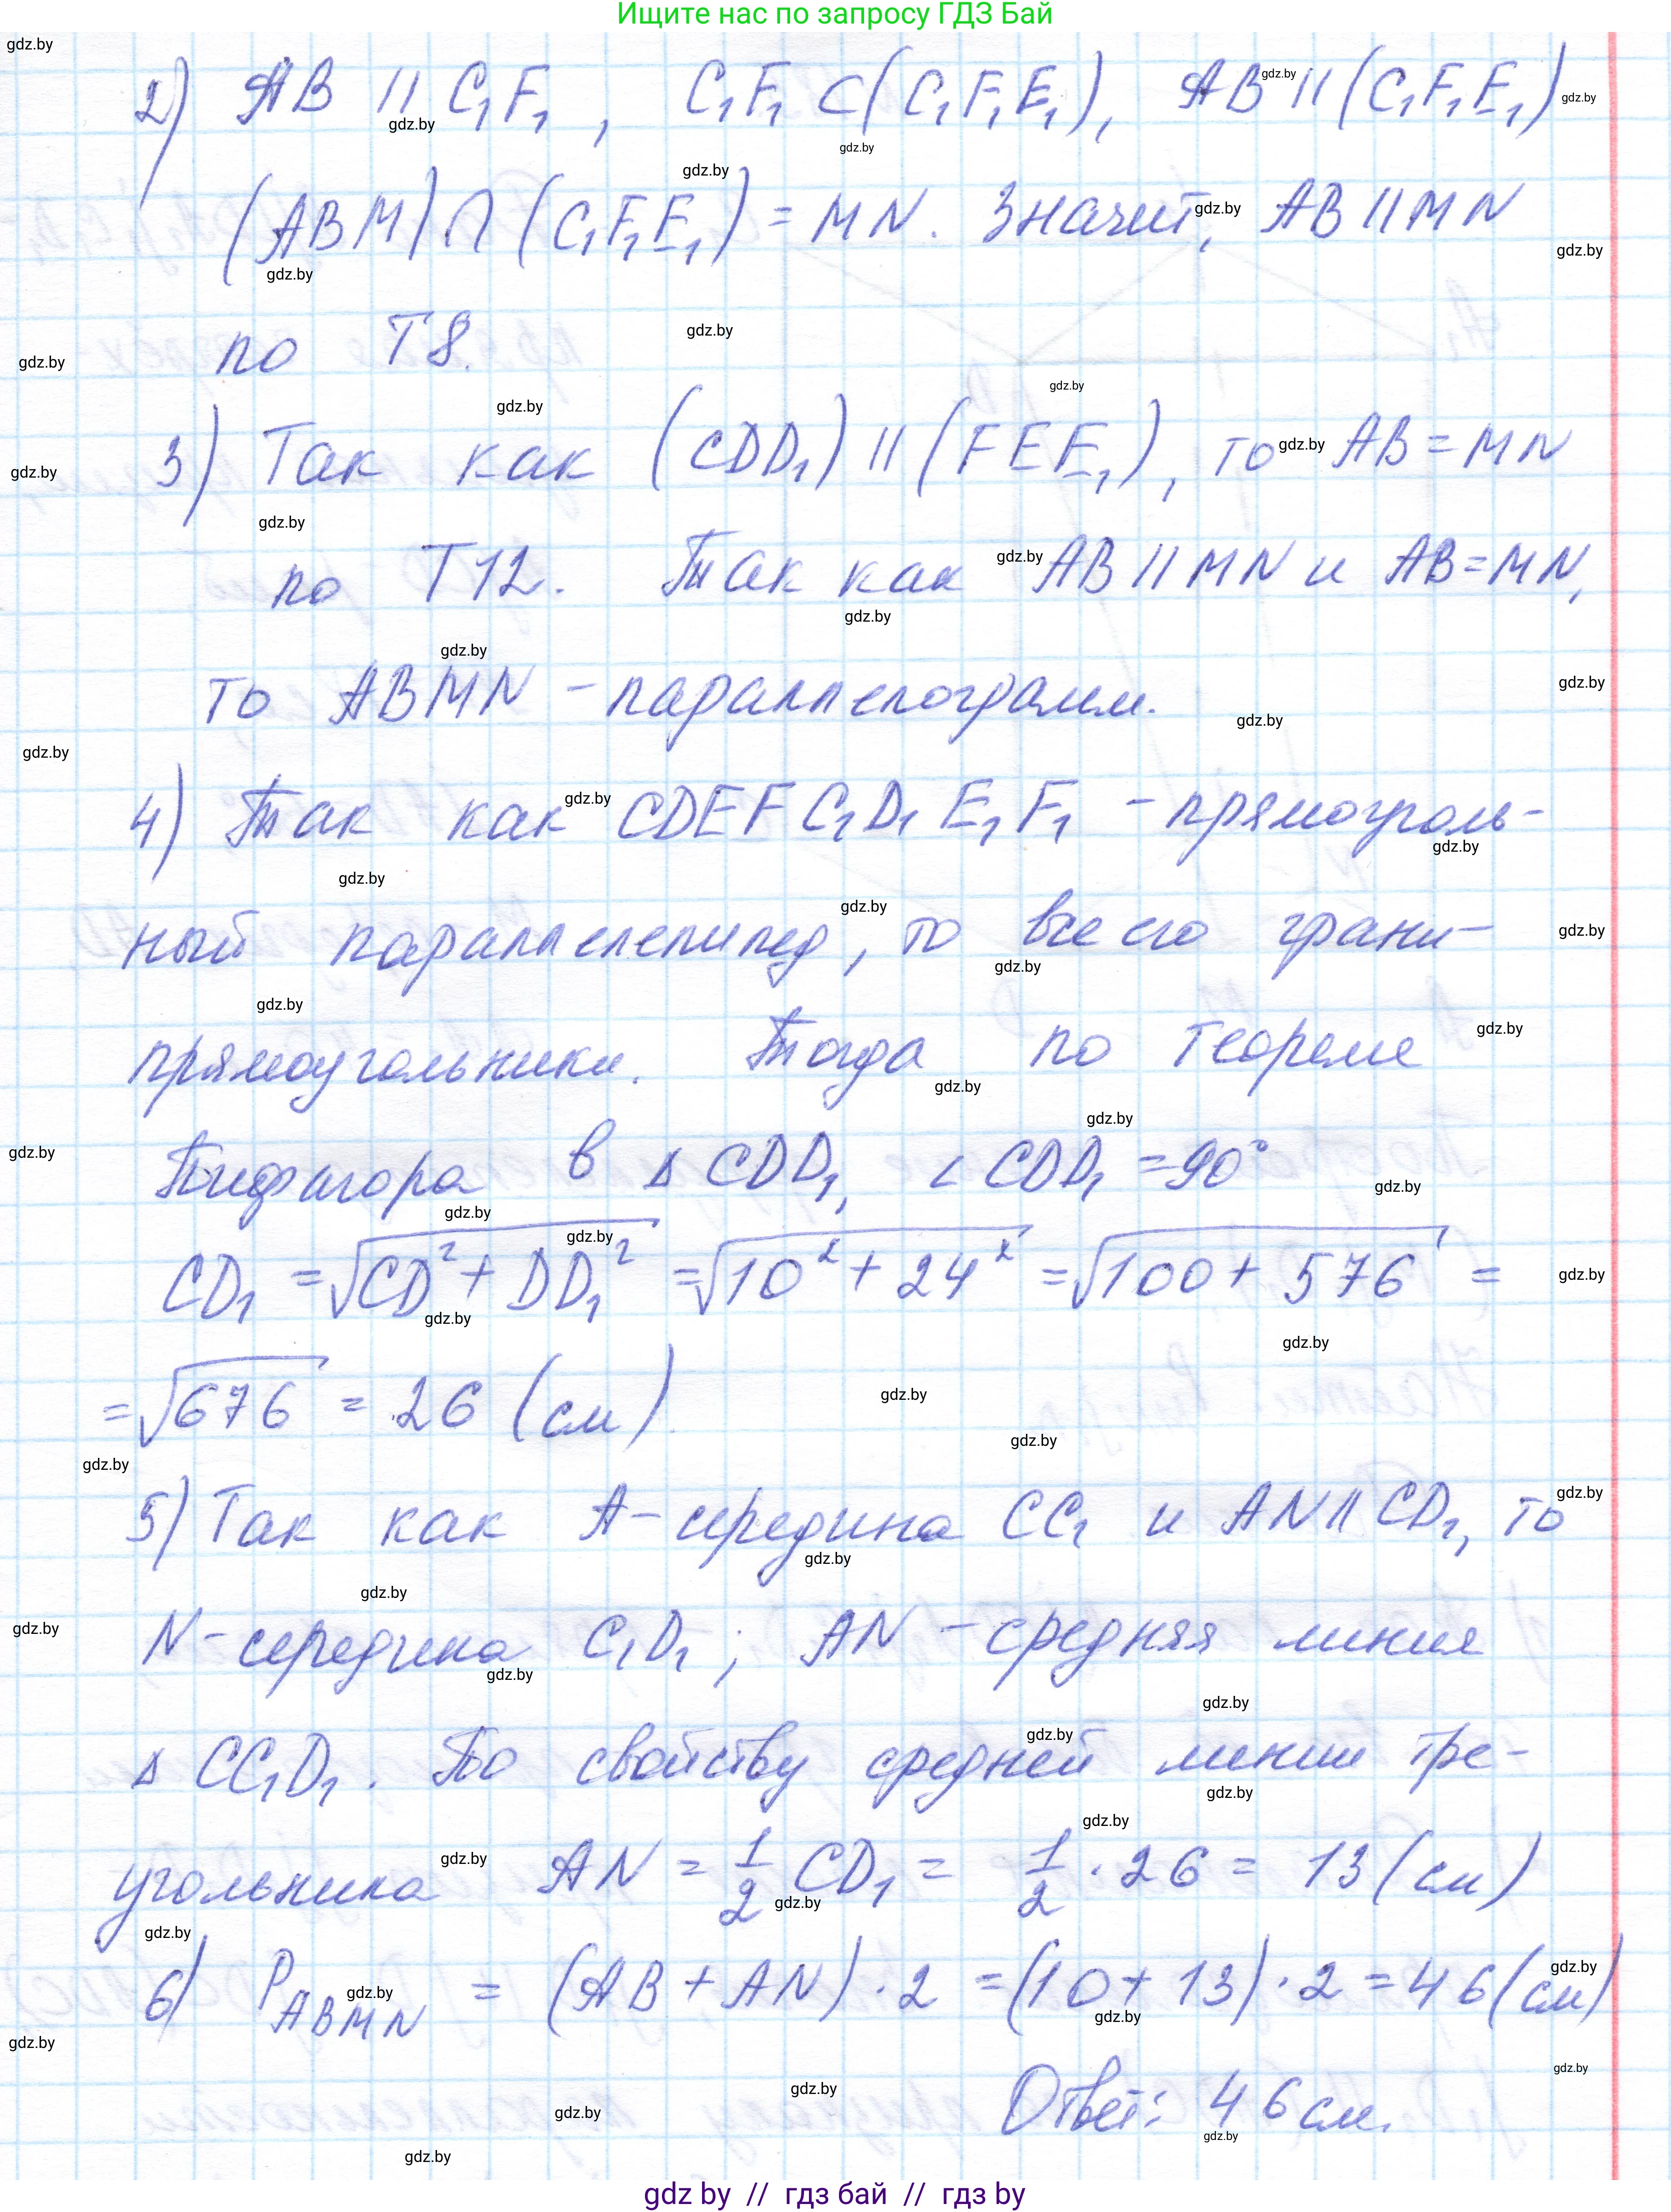 Ищите нас по запросу ГДЗ Бай
2) AB || C₁F₁, C₁F₁ ⊂ (C₁F₁E₁), AB || (C₁F₁E₁)
(ABM) ∩ (C₁F₁E₁) = MN. Значит, AB || MN
по Т8.
3) Так как (CDD₁) || (FEE₁), то AB = MN
по Т12. Так как AB || MN и AB = MN,
то ABMN – параллелограмм.
4) Так как CDEFC₁D₁E₁F₁ – прямоуголь-
ный параллелепипед, то все его грани –
прямоугольники. Тогда по теореме
Пифагора в Δ CDD₁, ∠ CDD₁ = 90°
CD₁ = √(CD² + DD₁²) = √(10² + 24²) = √(100 + 576) =
= √676 = 26 (см)
5) Так как A – середина CC₁ и AN || CD₁, то
N – середина C₁D₁; AN – средняя линия
Δ CC₁D₁. По свойству средней линии тре-
угольника AN = 1/2 CD₁ = 1/2 · 26 = 13 (см)
6) P_ABMN = (AB + AN) · 2 = (10 + 13) · 2 = 46 (см)
Ответ: 46 см.
gdz by // гдз бай // гдз by